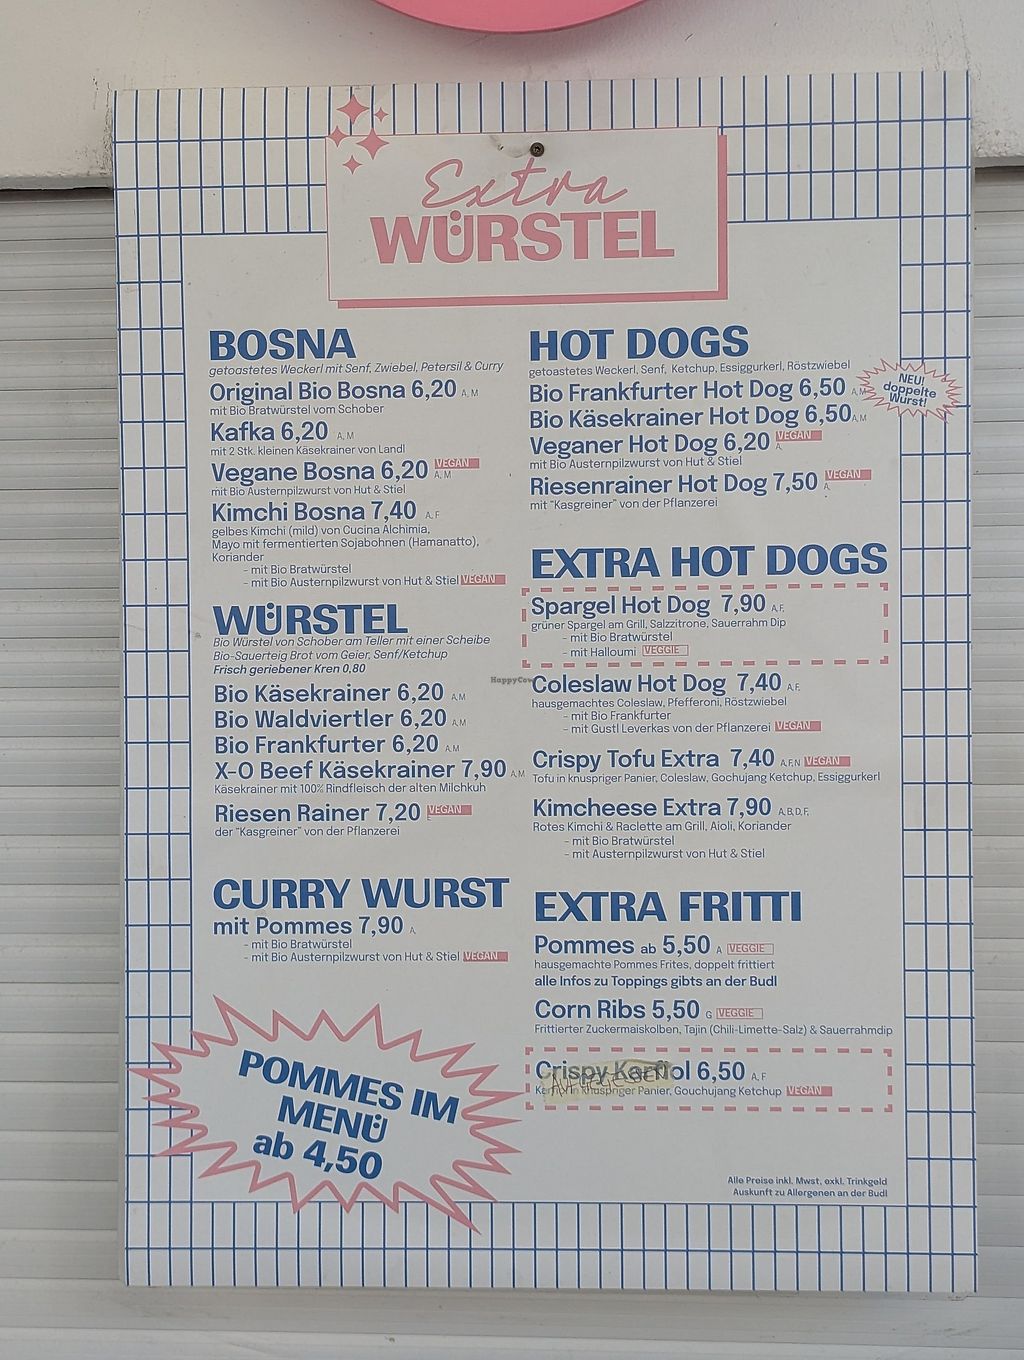 Extra
WÜRSTEL
BOSNA
getoastetes Weckerl mit Senf, Zwiebel, Petersil & Curry
Original Bio Bosna 6,20 A, M
mit Bio Bratwürstel vom Schober
Kafka 6,20 A, M
mit 2 Stk. kleinen Käsekrainer von Landl
Vegane Bosna 6,20 VEGAN A, M
mit Bio Austernpilzwurst von Hut & Stiel
Kimchi Bosna 7,40 A, F
gelbes Kimchi (mild) von Cucina Alchimia,
Mayo mit fermentierten Sojabohnen (Hamanatto),
Koriander
- mit Bio Bratwürstel
- mit Bio Austernpilzwurst von Hut & Stiel VEGAN
WÜRSTEL
Bio Würstel von Schober am Teller mit einer Scheibe
Bio-Sauerteig Brot vom Geier, Senf/Ketchup
Frisch geriebener Kren 0,80
Bio Käsekrainer 6,20 A,M
Bio Waldviertler 6,20 A,M
Bio Frankfurter 6,20 A,M
X-O Beef Käsekrainer 7,90 A,M
Käsekrainer mit 100% Rindfleisch der alten Milchkuh
Riesen Rainer 7,20 VEGAN
der "Kasgreiner" von der Pflanzerei
CURRY WURST
mit Pommes 7,90 A,
- mit Bio Bratwürstel
- mit Bio Austernpilzwurst von Hut & Stiel VEGAN
POMMES IM
MENÜ
ab 4,50
HOT DOGS
getoastetes Weckerl, Senf, Ketchup, Essiggurkerl, Röstzwiebel
Bio Frankfurter Hot Dog 6,50 A,M
NEU!
doppelte
Wurst!
Bio Käsekrainer Hot Dog 6,50 A,M
Veganer Hot Dog 6,20 VEGAN A,
mit Bio Austernpilzwurst von Hut & Stiel
Riesenrainer Hot Dog 7,50 VEGAN A,
mit "Kasgreiner" von der Pflanzerei
EXTRA HOT DOGS
Spargel Hot Dog 7,90 A,F,
grüner Spargel am Grill, Salzzitrone, Sauerrahm Dip
- mit Bio Bratwürstel
- mit Halloumi VEGGIE
HappyCow
Coleslaw Hot Dog 7,40 A,F,
hausgemachtes Coleslaw, Pfefferoni, Röstzwiebel
- mit Bio Frankfurter
- mit Gustl Leverkas von der Pflanzerei VEGAN
Crispy Tofu Extra 7,40 A,F,N VEGAN
Tofu in knuspriger Panier, Coleslaw, Gochujang Ketchup, Essiggurkerl
Kimcheese Extra 7,90 A,B,D,F,
Rotes Kimchi & Raclette am Grill, Aioli, Koriander
- mit Bio Bratwürstel
- mit Austernpilzwurst von Hut & Stiel
EXTRA FRITTI
Pommes ab 5,50 A VEGGIE
hausgemachte Pommes Frites, doppelt frittiert
alle Infos zu Toppings gibts an der Budl
Corn Ribs 5,50 G VEGGIE
Frittierter Zuckermaiskolben, Tajin (Chili-Limette-Salz) & Sauerrahmdip
Crispy Karfiol 6,50 A, F
Karfiol in knuspriger Panier, Gouchujang Ketchup VEGAN
Alle Preise inkl. Mwst, exkl. Trinkgeld
Auskunft zu Allergenen an der Budl